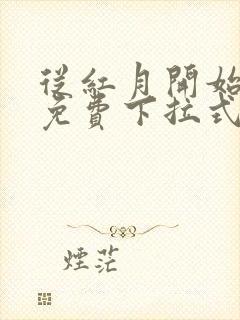 從紅月開始
免費下拉式
煙茫